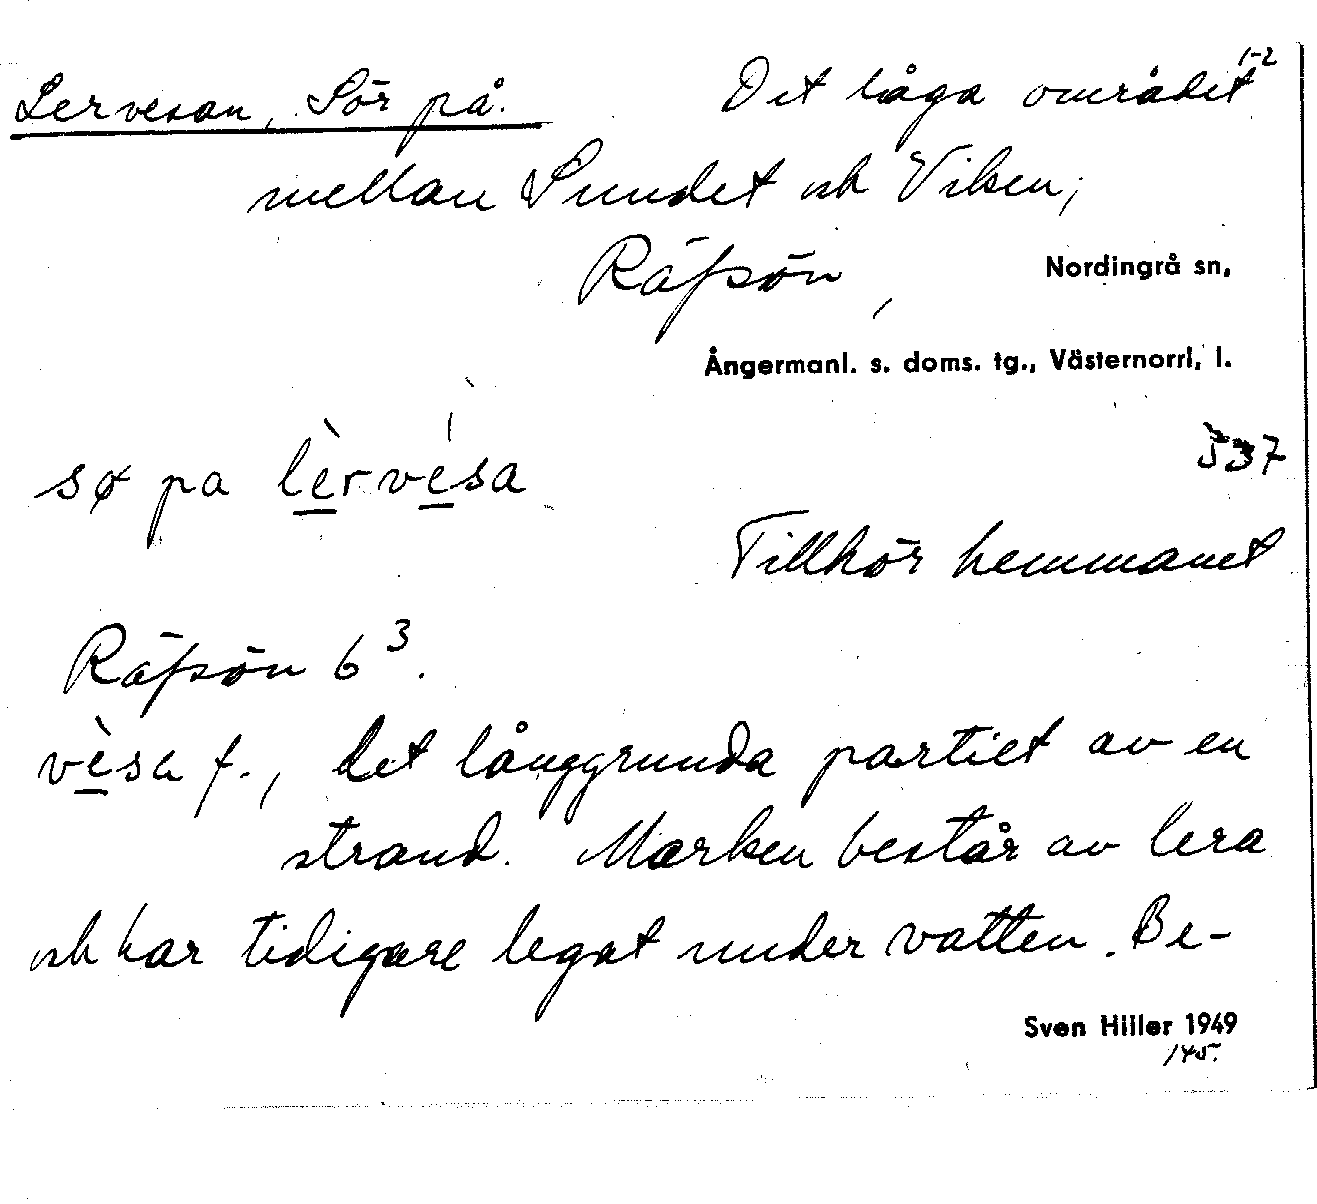 1-2
Lervesan, Sör på. Det låga området
mellan Sundet och Viken,
Räfsön, Nordingrå sn,
Ångermanl. s. doms. tg., Västernorrl, l.
537
sø pa lèrvésa
Tillhör hemmanet
Räfsön 6³.
vèsa f., det långgrunda partiet av en
strand. Marken består av lera
och har tidigare legat under vatten. Be-
Sven Hiller 1949
145.